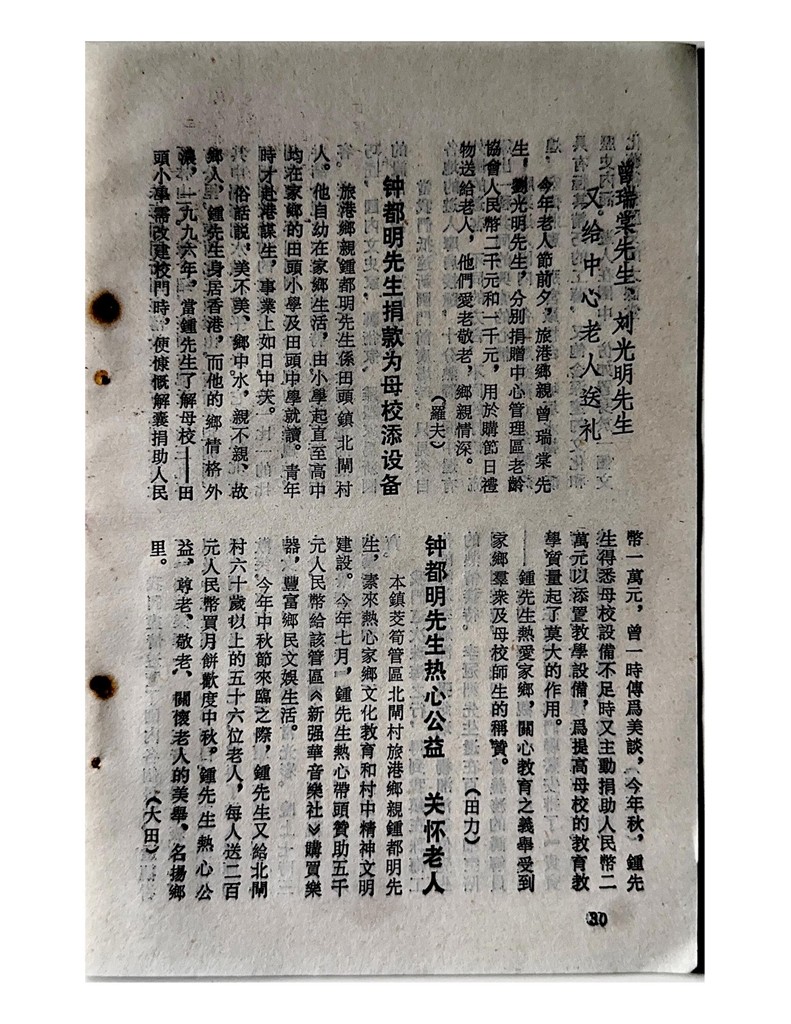 曾瑞棠先生、刘光明先生
又给中心老人送礼
今年老人節前夕，旅港鄉親曾瑞棠先
生，劉光明先生，分別捐贈中心管理區老齡
協會人民幣二千元和一千元，用於購節日禮
物送給老人，他們愛老敬老，鄉親情深。
（羅夫）
钟都明先生捐款为母校添设备
旅港鄉親鍾都明先生係田頭鎮北閘村
人。他自幼在家鄉生活，由小學起直至高中
均在家鄉的田頭小學及田頭中學就讀。青年
時才赴港謀生，事業上如日中天。
俗話説，美不美、鄉中水，親不親、故
鄉人，鍾先生身居香港，而他的鄉情格外
濃，一九九六年，當鍾先生了解母校——田
頭小學需改建校門時，便慷慨解囊捐助人民
幣一萬元，曾一時傳爲美談，今年秋，鍾先
生得悉母校設備不足時又主動捐助人民幣二
萬元以添置教學設備，爲提高母校的教育教
學質量起了莫大的作用。
鍾先生熱愛家鄉，關心教育之義舉受到
家鄉羣衆及母校師生的稱贊。
（田力）
钟都明先生热心公益　关怀老人
本鎮茭筍管區北閘村旅港鄉親鍾都明先
生，素來熱心家鄉文化教育和村中精神文明
建設。今年七月，鍾先生熱心帶頭贊助五千
元人民幣給該管區《新强華音樂社》購買樂
器，豐富鄉民文娛生活。
今年中秋節來臨之際，鍾先生又給北閘
村六十歲以上的五十六位老人，每人送二百
元人民幣買月餅歡度中秋。鍾先生熱心公
益，尊老、敬老、關懷老人的美舉，名揚鄉
里。
（大田）
30